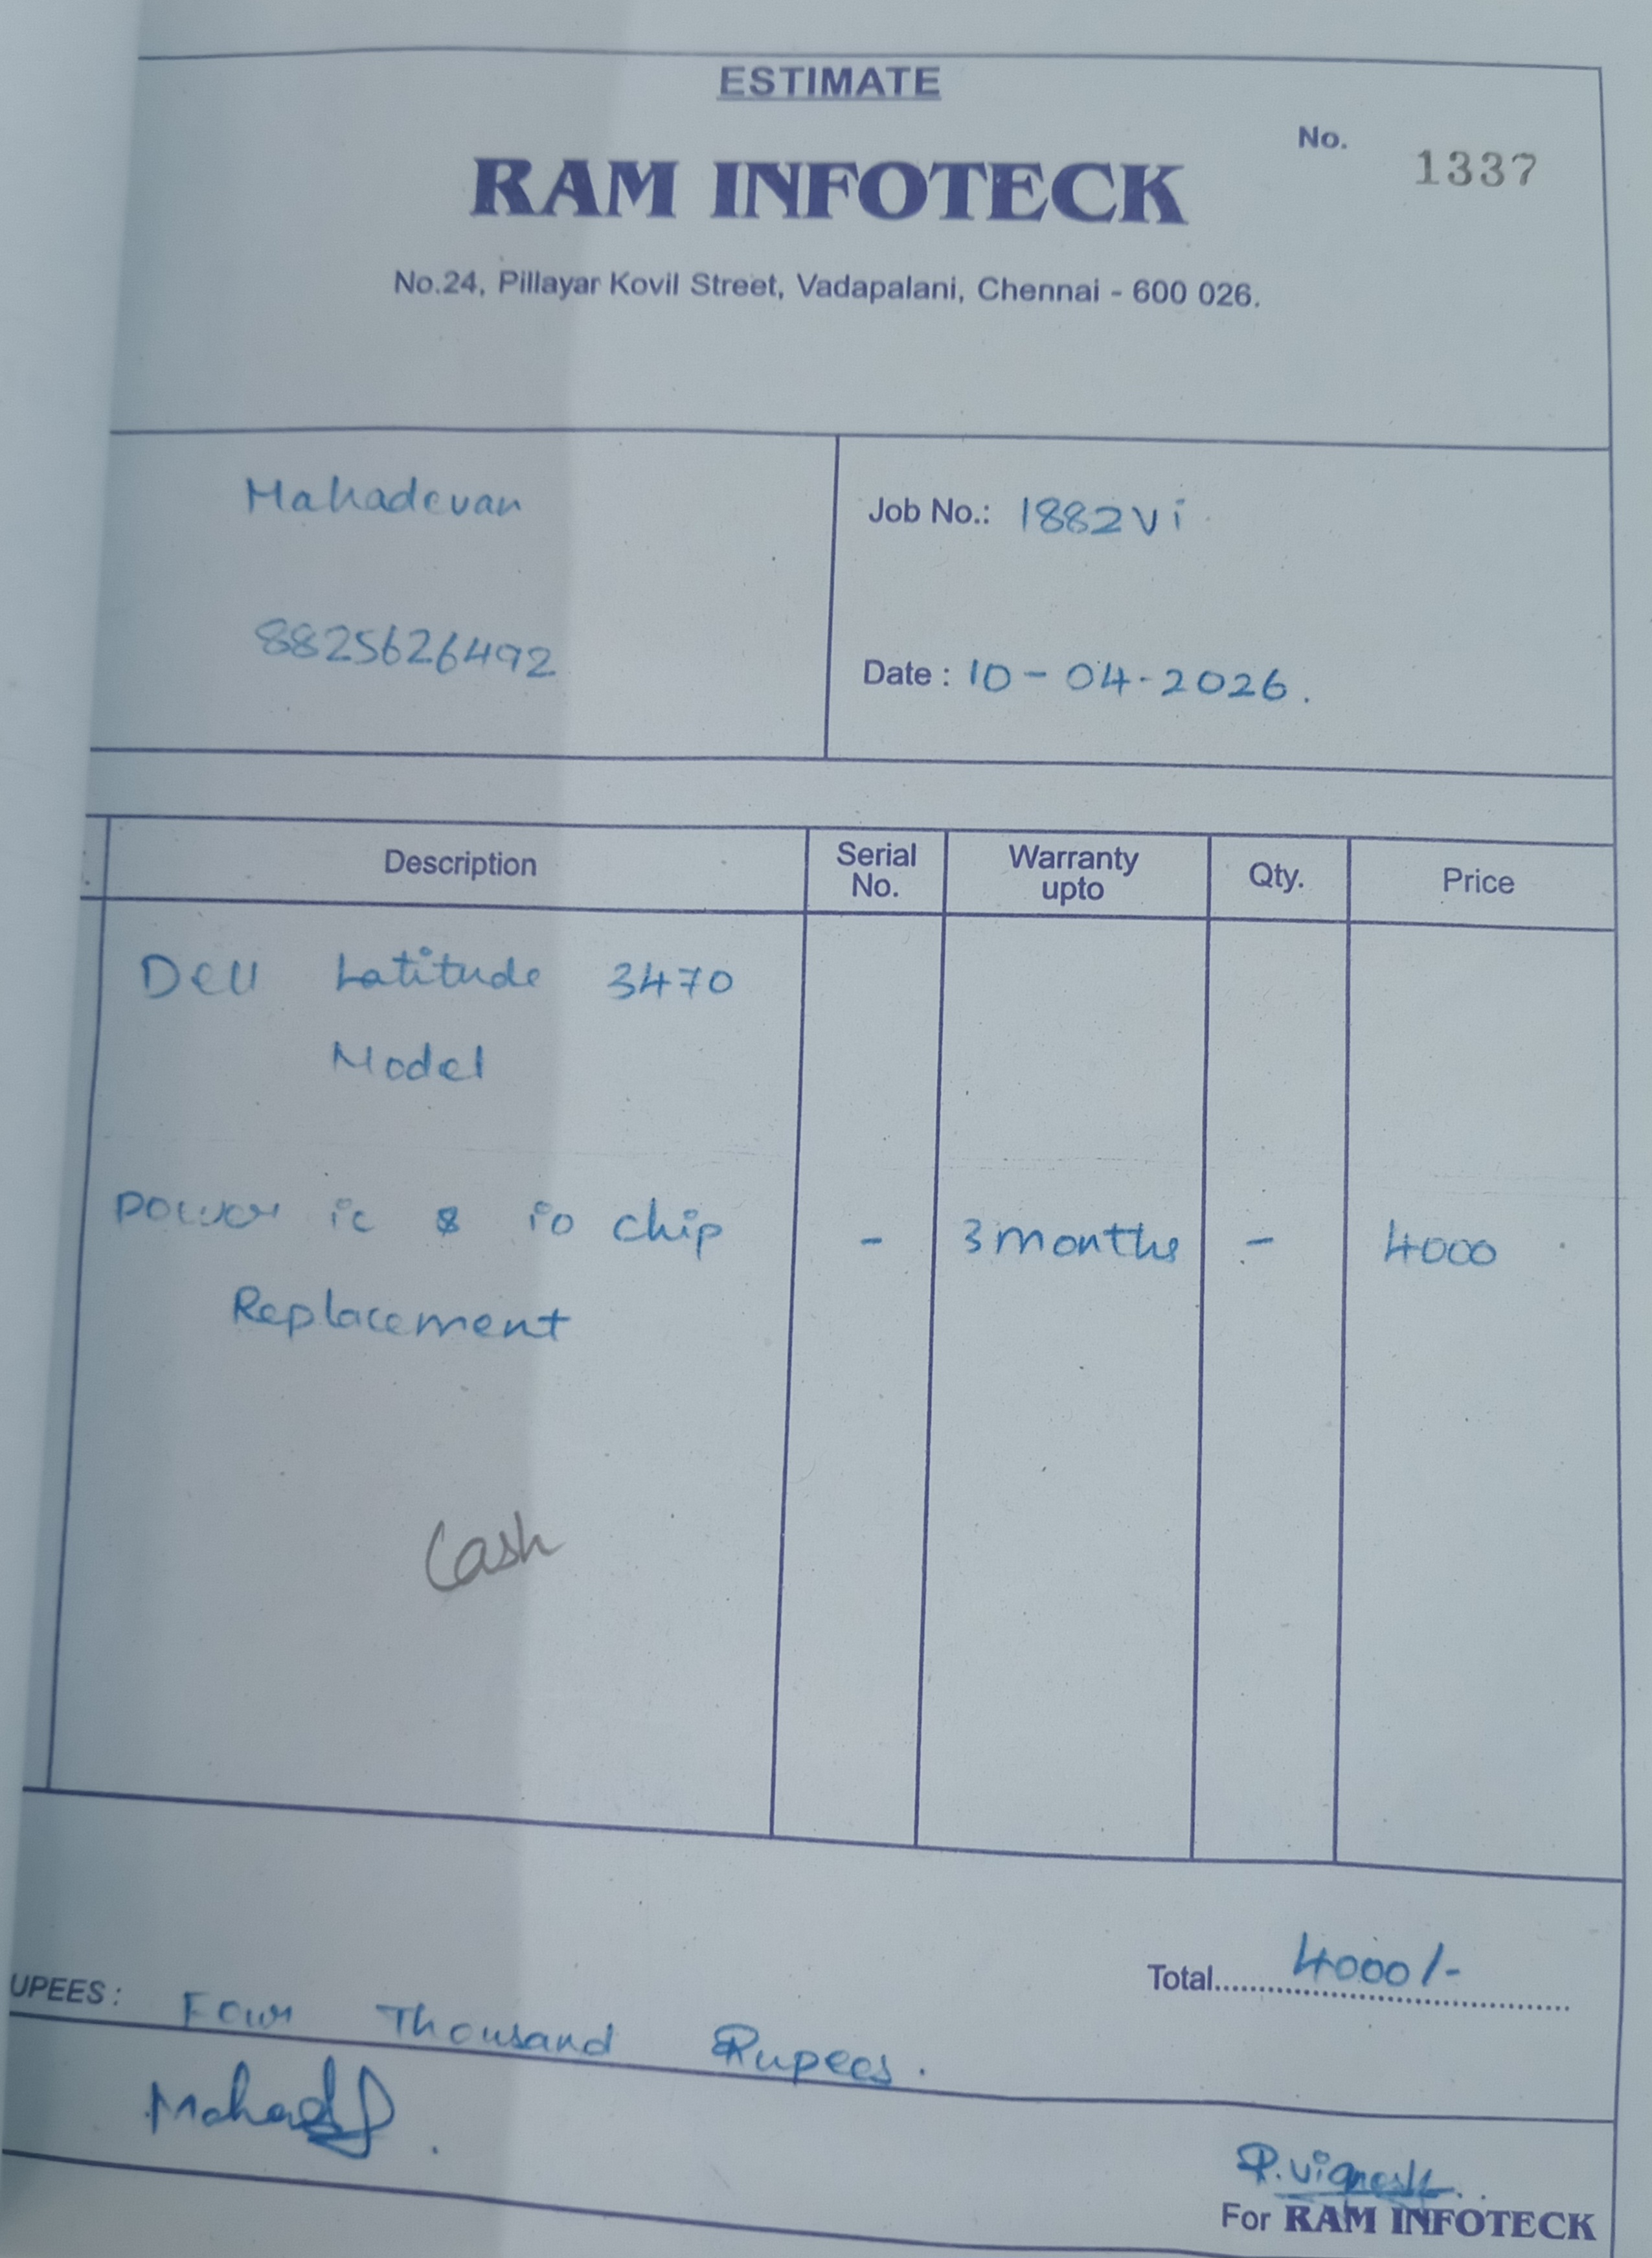 ESTIMATE
No. 1337
RAM INFOTECK
No.24, Pillayar Kovil Street, Vadapalani, Chennai - 600 026.
Mahadevan
Job No.: 1882Vi
8825626492
Date : 10-04-2026.
Description Serial No. Warranty upto Qty. Price
Dell Latitude 3470
Model
Power ic & io chip - 3 months - 4000
Replacement
Cash
Total 4000/-
UPEES : Four Thousand Rupees.
P.Vignesh
For RAM INFOTECK